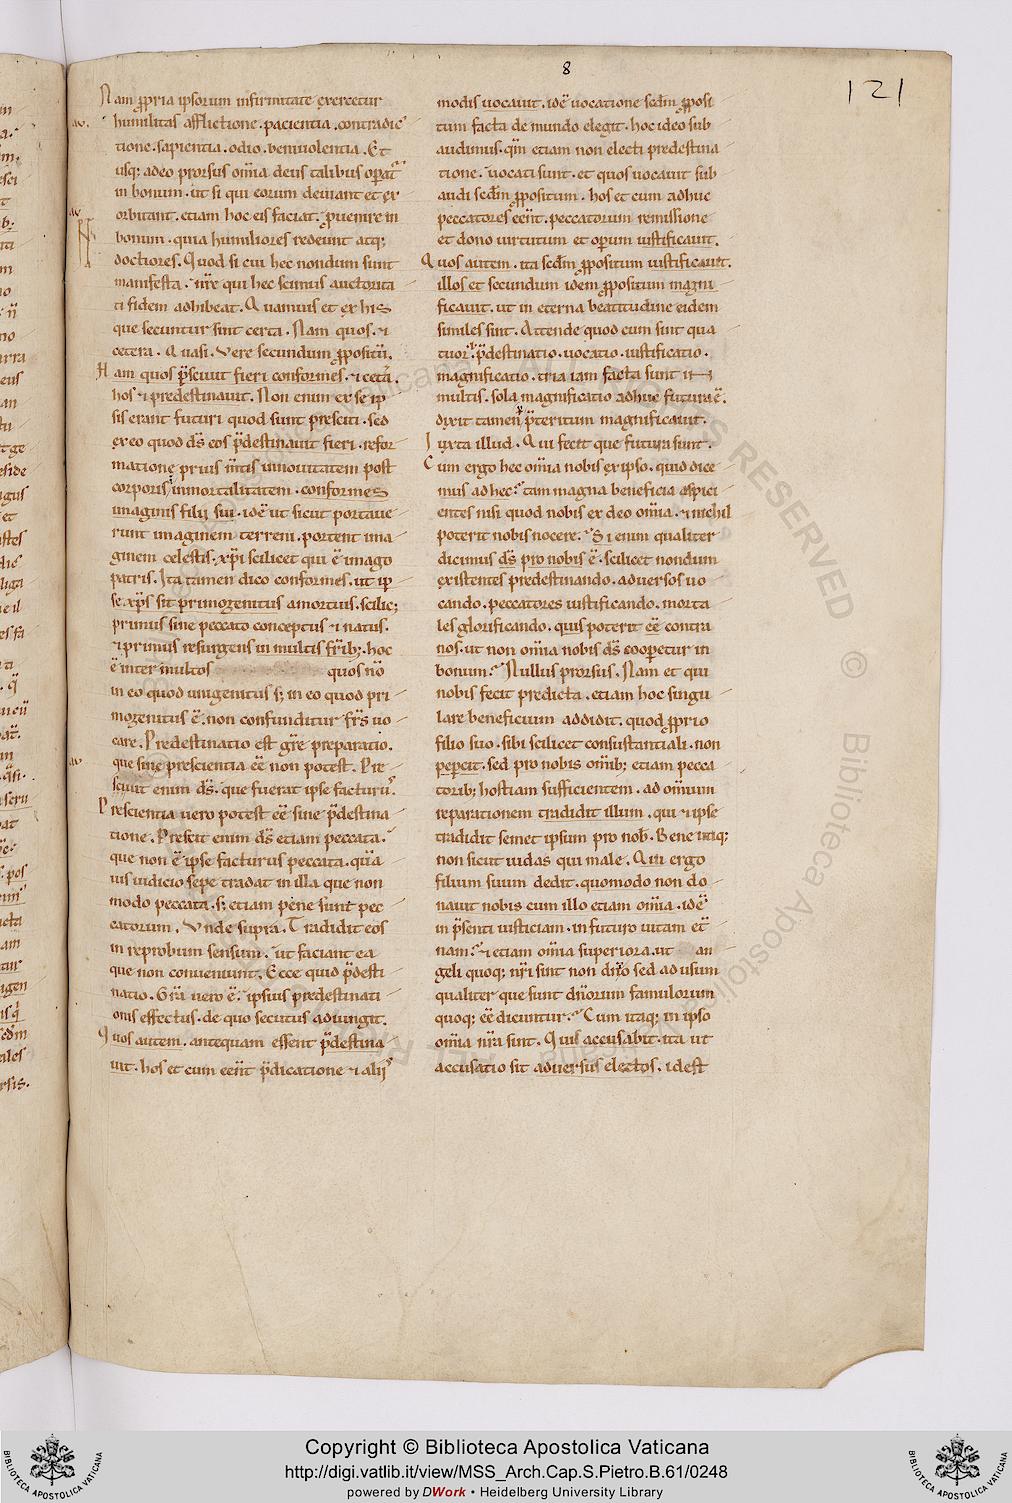 8
121
Nam ꝓpria ipsorum infirmitate exercetur
humilitas afflictione. pacientia. contradic
tione. sapientia. odio. beniuolentia. Et
usq; adeo prorsus om̄ia deus talibus operat᷑
in bonum. ut si qui eorum deuiant et ex
orbitant. etiam hoc eis faciat. ꝓuenire in
bonum. quia humiliores redeunt atq;
doctiores. Quod si cui hec nondum sunt
manifesta. uir̄e qui hec scimus auctorita
ti fidem adhibeat. Quamuis et ex his
que secuntur sint certa. Nam quos. ⁊
cetera. Quasi. Vere secundum ꝓpositū.
Nam quos p̄sciuit fieri conformes. ⁊ cet̄a.
hos ⁊ predestinauit. Non enim ex se ip
sis erant futuri quod sunt presciti. sed
ex eo quod ds̄ eos p̄destinauit fieri. refor
matione prius m̄tis innouitatem post
corporis inmortalitatem. conformes
imaginis filij sui. idē ut sicut portaue
runt imaginem terreni. portent ima
ginem celestis. xp̄i scilicet qui ē imago
patris. Ita tamen dico conformes. ut ip
se xp̄s sit primogenitus amortuis. scilic;
primus sine peccato conceptus ⁊ natus.
⁊ primus resurgens in multis fr̄ib;. hoc
ē inter multos quos nō
in eo quod unigenitus s; in eo quod pri
mogenitus ē. non confunditur fr̄s uo
care. Predestinatio est gr̄e preparatio.
que sine prescientia eē non potest. Pre
sciuit enim ds̄. que fuerat ipse facturꝰ.
Prescientia uero potest eē sine p̄destina
tione. Prescit enim ds̄ etiam peccata.
que non ē ipse facturus peccata. quā
uis iudicio sepe tradat in illa que non
modo peccata. s; etiam pene sunt pec
catorum. Vnde supra. Tradidit eos
in reprobum sensum. ut faciant ea
que non conueniunt. Ecce quid p̄desti
natio. Gr̄a uero ē. ipsius predestinati
onis effectus. de quo secutus adiungit.
Quos autem. antequam essent p̄destina
uit. hos et cum eēnt p̄dicatione ⁊ alijꝰ
modis uocauit. idē uocatione scdm̄ ꝓposi
tum facta de mundo elegit. hoc ideo sub
audimus. qm̄ etiam non electi predestina
tione. uocati sunt. et quos uocauit sub
audi scdm̄ ꝓpositum. hos et cum adhuc
peccatores eēnt. peccatorum remissione
et dono uirtutum et operum iustificauit.
Quos autem. ita scdm̄ ꝓpositum iustificauit.
illos et secundum idem ꝓpositum magni
ficauit. ut in eterna beatitudine eidem
similes sint. Attende quod cum sint qua
tuor. p̄destinatio. uocatio. iustificatio.
magnificatio. tria iam facta sunt in
multis. sola magnificatio adhuc futura ē.
dixit tamen p̄teritum magnificauit.
Iuxta illud. Qui fecit que futura sunt.
Cum ergo hec om̄ia nobis ex ipso. quid dice
mus ad hec? tam magna beneficia aspici
entes nisi quod nobis ex deo om̄ia. ⁊ nichil
poterit nobis nocere. Si enim qualiter
dicimus ds̄ pro nobis ē. scilicet nondum
existentes predestinando. aduersos uo
cando. peccatores iustificando. morta
les glorificando. quis poterit eē contra
nos. ut non om̄ia nobis ds̄ cooperetur in
bonum? Nullus prorsus. Nam et qui
nobis fecit predicta. etiam hoc singu
lare beneficium addidit. quod ꝓprio
filio suo. sibi scilicet consustantiali. non
pepercit. sed pro nobis om̄ib; etiam pecca
torib; hostiam sufficientem. ad om̄ium
reparationem tradidit illum. qui ⁊ ipse
tradidit semet ipsum pro nob̄. Bene itaq;
non sicut iudas qui male. Qui ergo
filium suum dedit. quomodo non do
nauit nobis cum illo etiam om̄ia. idē
in p̄senti iusticiam. in futuro uitam et̄
nam? ⁊ etiam om̄ia superiora. ut an
geli quoq; nr̄i sint non dico sed ad usum
qualiter que sunt dn̄orum famulorum
quoq; eē dicuntur? Cum itaq; in ipso
om̄ia nr̄a sint. Quis accusabit. ita ut
accusatio sit aduersus electos. idest
Copyright © Biblioteca Apostolica Vaticana
http://digi.vatlib.it/view/MSS_Arch.Cap.S.Pietro.B.61/0248
powered by DWork • Heidelberg University Library